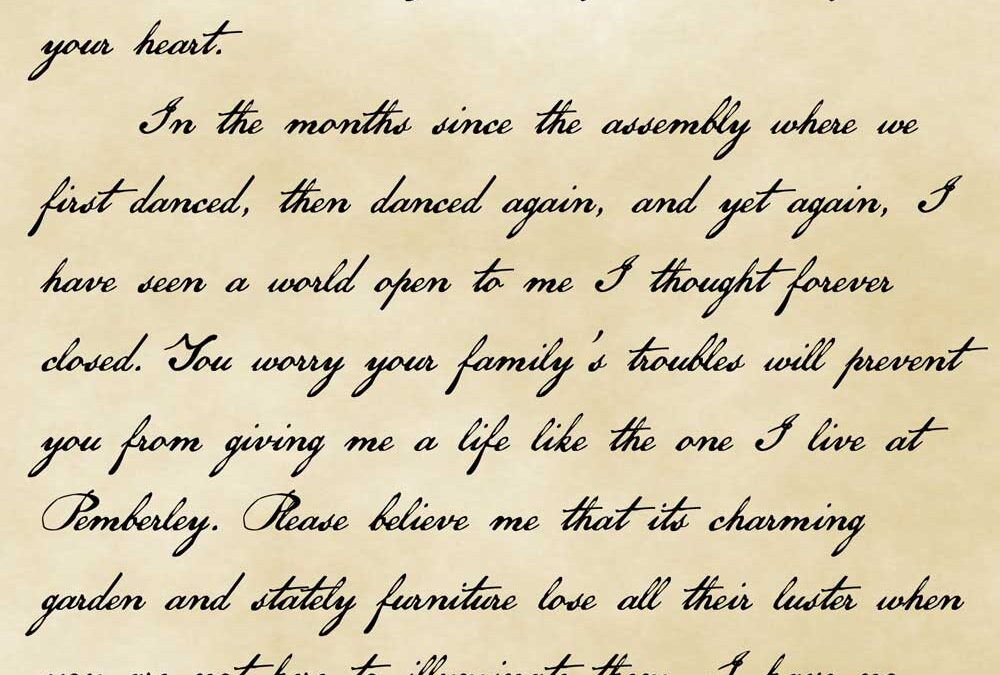 your heart.
In the months since the assembly where we
first danced, then danced again, and yet again, I
have seen a world open to me I thought forever
closed. You worry your family's troubles will prevent
you from giving me a life like the one I live at
Pemberley. Please believe me that its charming
garden and stately furniture lose all their luster when
you are not here to illuminate them. I have no